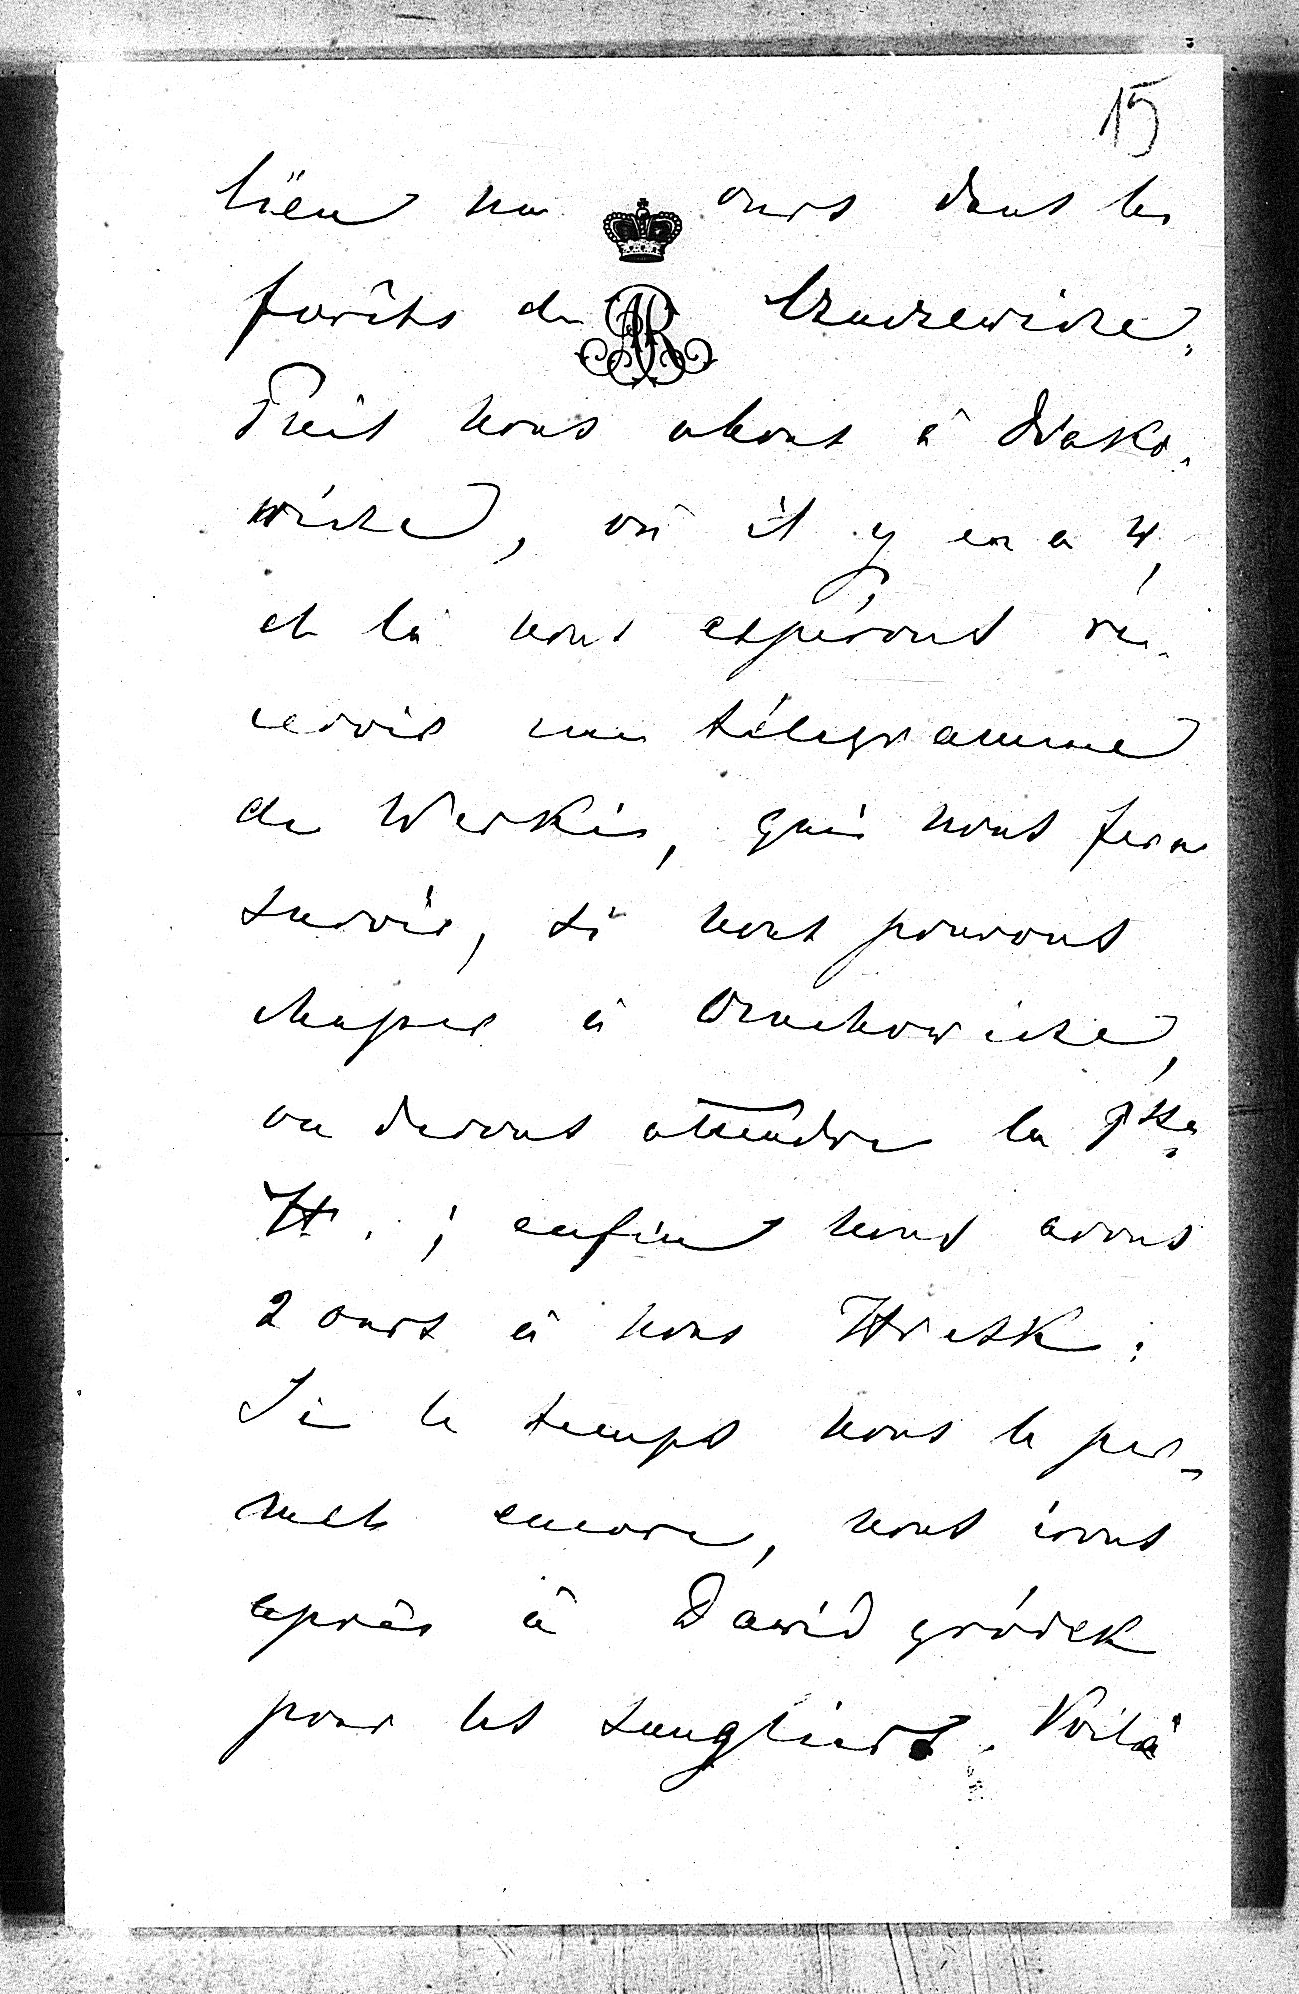 15
bien un ours dans les
forêts de Czuczewicze.
Puis nous allons à Diako-
wicze, où il y en a 4,
et là nous espérons re-
cevoir un télégramme
de Werki, qui nous fera
savoir, si nous pouvons
chasser à Orachowicze,
ou devons attendre la Psse
H. ; enfin nous avons
2 ours à nous Hresk.
Si le temps nous le per-
met encore, nous irons
après à Dawidgródek
pour les sangliers. Voilà